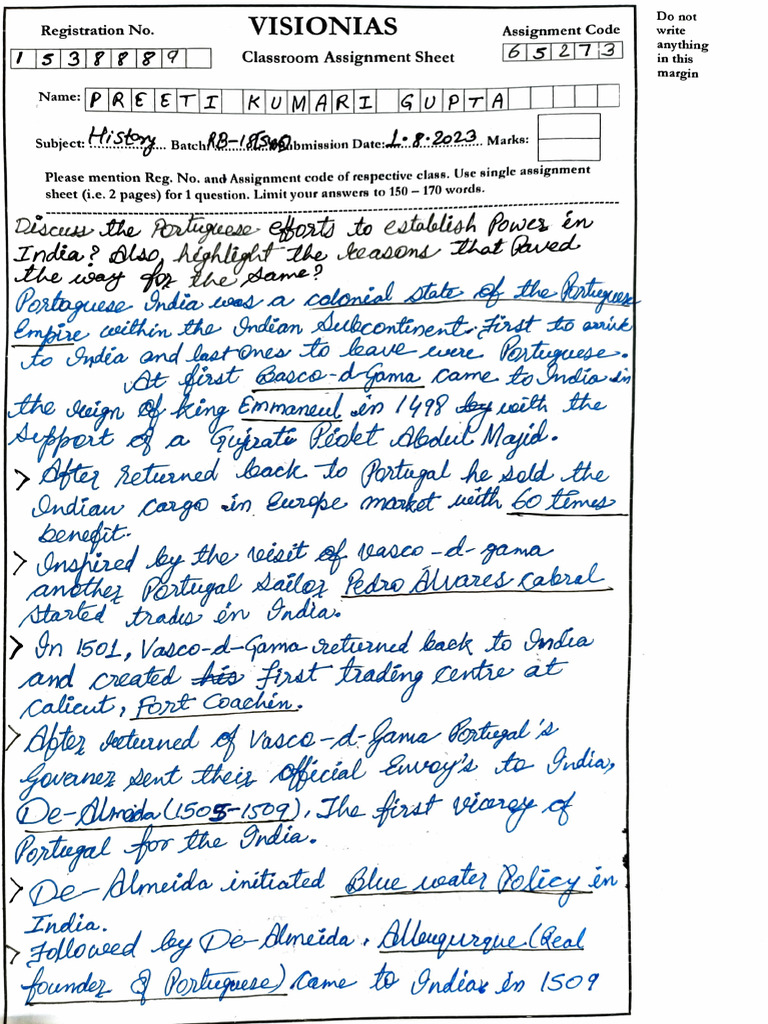 Registration No.
VISIONIAS
Assignment Code
1538889
Classroom Assignment Sheet
65273
Name: PREETI KUMARI GUPTA
Subject: History Batch RB-18 Submission Date: 1.8.2023 Marks:
Please mention Reg. No. and Assignment code of respective class. Use single assignment
sheet (i.e. 2 pages) for 1 question. Limit your answers to 150 – 170 words.
Do not
write
anything
in this
margin
Discuss the Portuguese efforts to establish Power in
India? Also, highlight the reasons that Paved
the way for the same?
Portaguese India was a colonial state of the Portuguese
Empire within the Indian Subcontinent. First to arrive
to India and last ones to leave were Portuguese.
At first Basco-d-Gama came to India in
the reign of king Emmaneul in 1498 by with the
support of a Gujrati Pidet Abdul Majid.
> After returned back to Portugal he sold the
Indian cargo in Europe market with 60 times
benefit.
> Inspired by the visit of vasco-d-gama
another Portugal sailor Pedro Álvares cabral
started trades in India.
> In 1501, Vasco-d-Gama returned back to India
and created his first trading centre at
calicut, Fort Coachin.
> After returned of Vasco-d-Gama Portugal's
Governer sent their official Envoy's to India,
De-Almeida (1505-1509), The first viceroy of
Portugal for the India.
> De-Almeida initiated Blue water Policy in
India.
> Followed by De-Almeida, Albuquerque (Real
founder of Portuguese) came to India in 1509